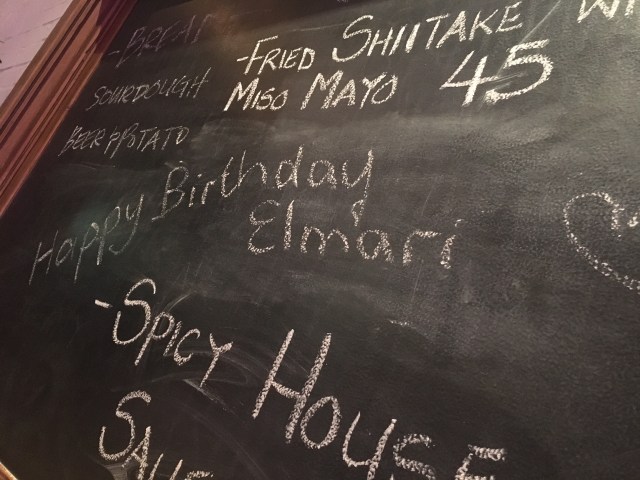 -BREAD
SOURDOUGH
BEER & POTATO
-FRIED SHIITAKE
MISO MAYO 45
Happy Birthday
Elmari
-SPICY HOUSE